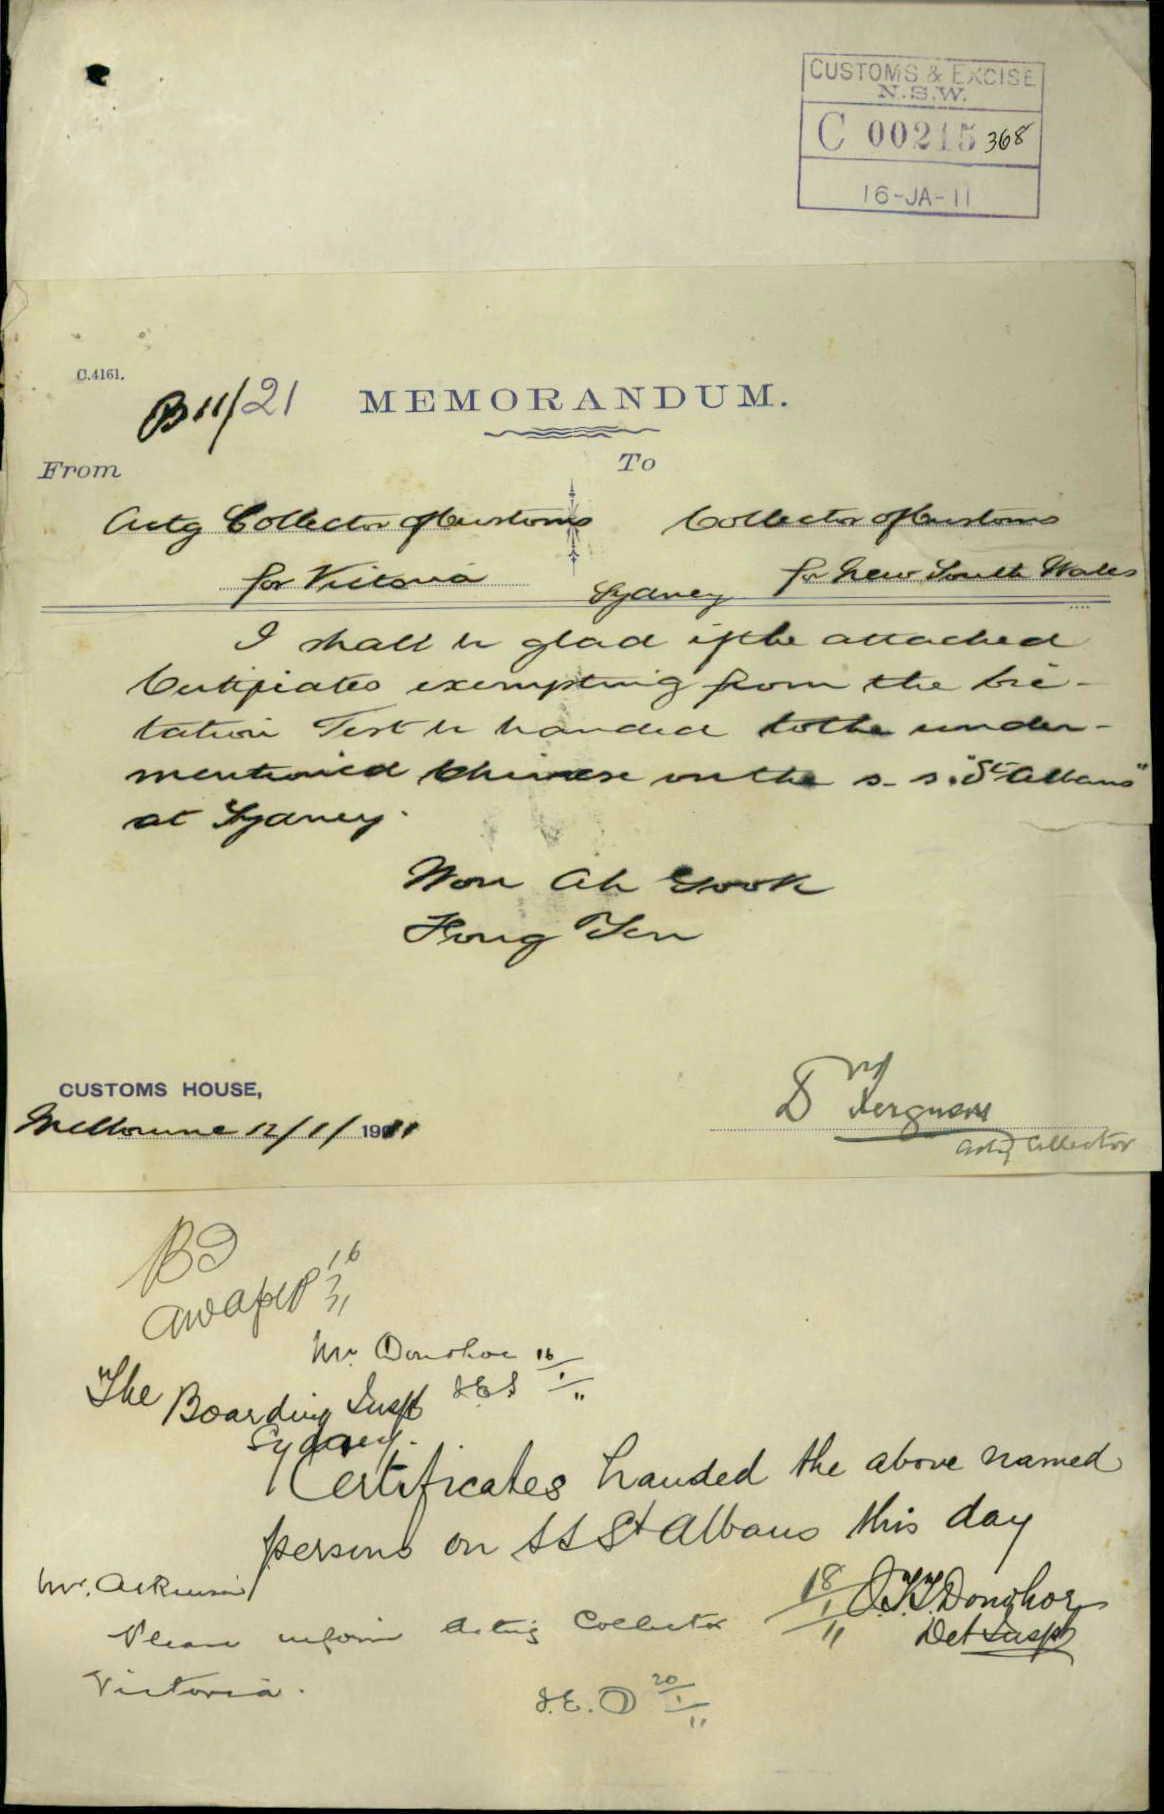 CUSTOMS & EXCISE
N.S.W.
C 00215 368
16-JA-11
C.4161.
B11/21 MEMORANDUM.
From To
Actg Collector of Customs Collector of Customs
for Victoria Sydney for New South Wales
I shall be glad if the attached
Certificates exempting from the Dic-
tation Test be handed to the under-
mentioned Chinese on the s.s. "St Albans"
at Sydney.
Won Ah Gook
Fong Yen
CUSTOMS HOUSE,
Melbourne 12/1/1911
Actg Collector
16
1
11
Mr. Donohoe 16/1/11
The Boarding Inspt
Sydney.
Certificates handed the above named
persons on SS St Albans this day
Mr. Atkinson 18/1/11 J.T.T. Donohoe
Please inform Acting Collector Det Inspr
Victoria.
20/1/11